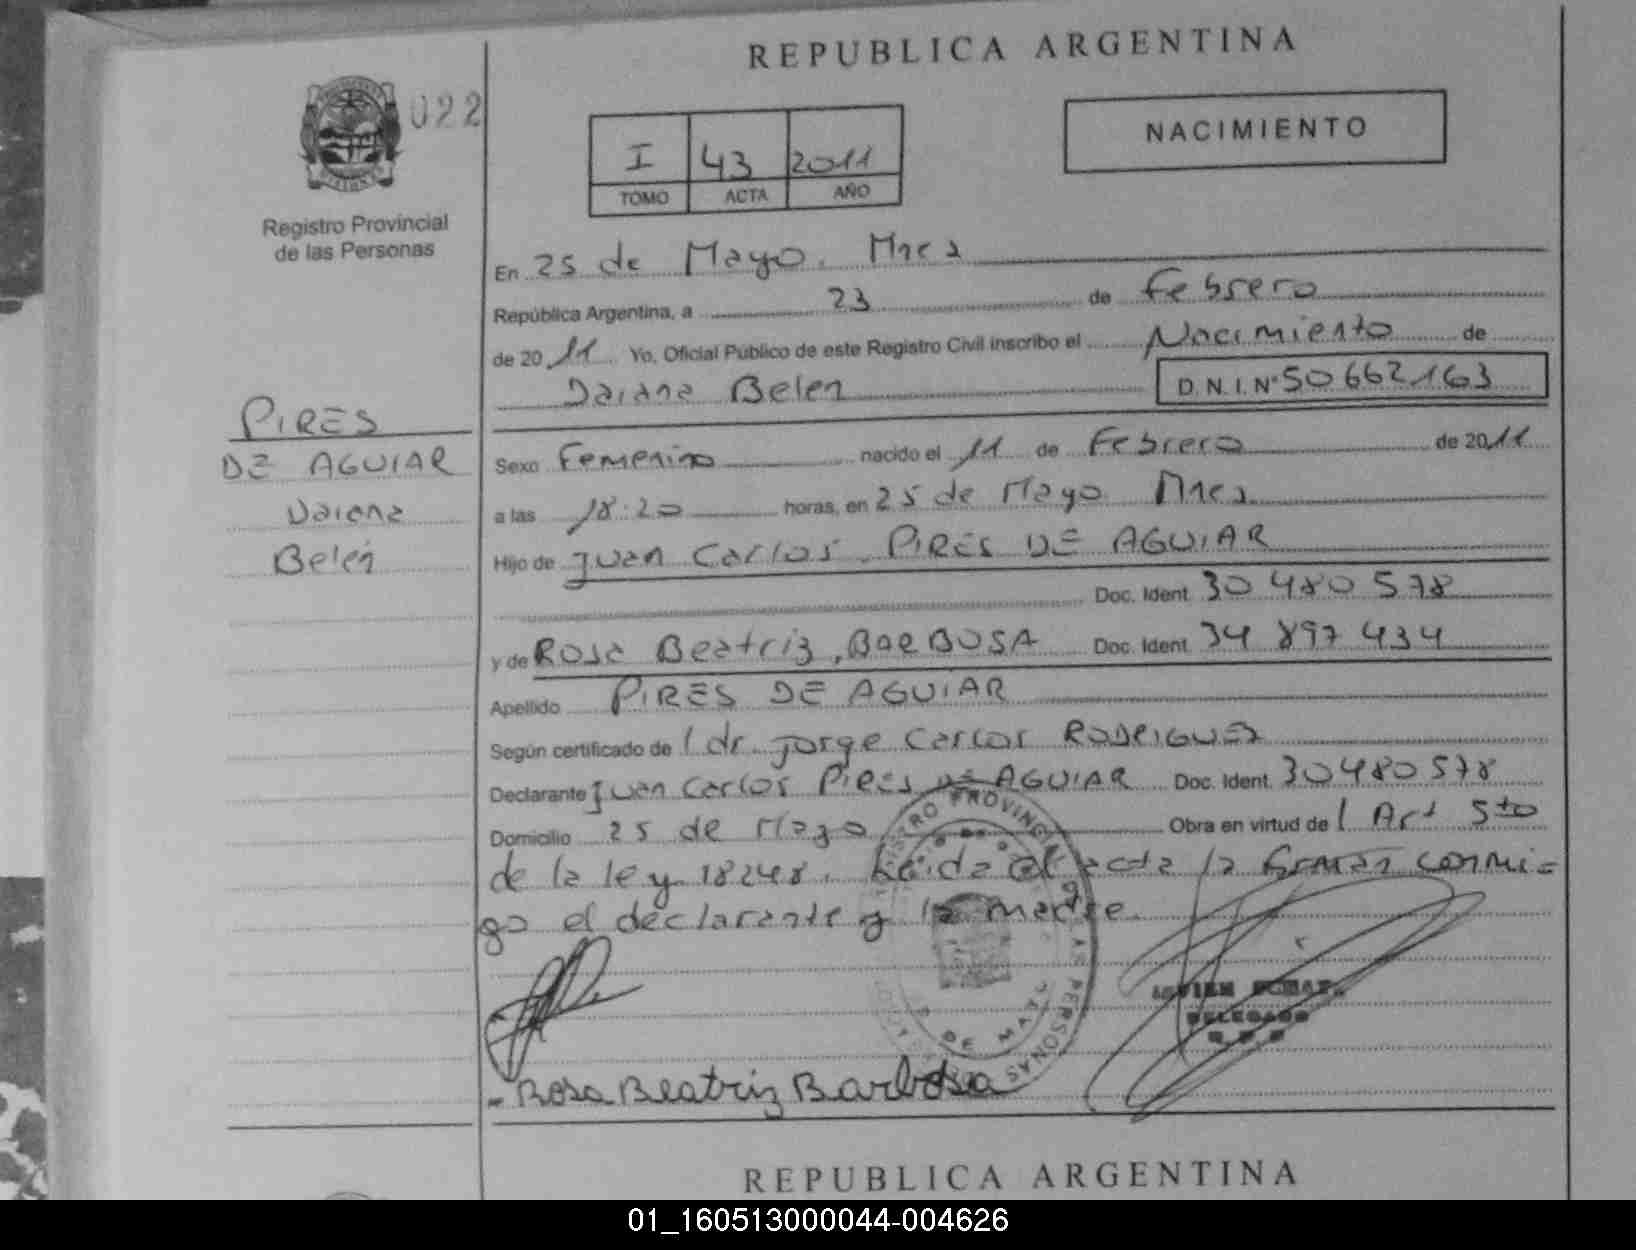 REPUBLICA ARGENTINA
022
NACIMIENTO
I 43 2011
TOMO ACTA AÑO
Registro Provincial
de las Personas
En 25 de Mayo. Mnes
República Argentina, a 23 de Febrero
de 2011 Yo, Oficial Público de este Registro Civil inscribo el Nacimiento de
Daiana Belen D.N.I. Nº 50662163
PIRES
DE AGUIAR
Daiana
Belén
Sexo Femenino nacido el 11 de Febrero de 2011
a las 18:20 horas, en 25 de Mayo Mnes
Hijo de Juan Carlos PIRES DE AGUIAR
Doc. Ident. 30 480 578
y de Rosa Beatriz, BARBOSA Doc. Ident. 34 897 434
Apellido PIRES DE AGUIAR
Según certificado de l dr. Jorge Carlos RODRIGUEZ
Declarante Juan Carlos Pires DE AGUIAR Doc. Ident. 30480578
Domicilio 25 de Mayo Obra en virtud de l Art 5to
de la ley 18248. Leida el acta la firman conmi=
go el declarante y la madre.
DELEGADO
- Rosa Beatriz Barbosa
REPUBLICA ARGENTINA
01_160513000044-004626